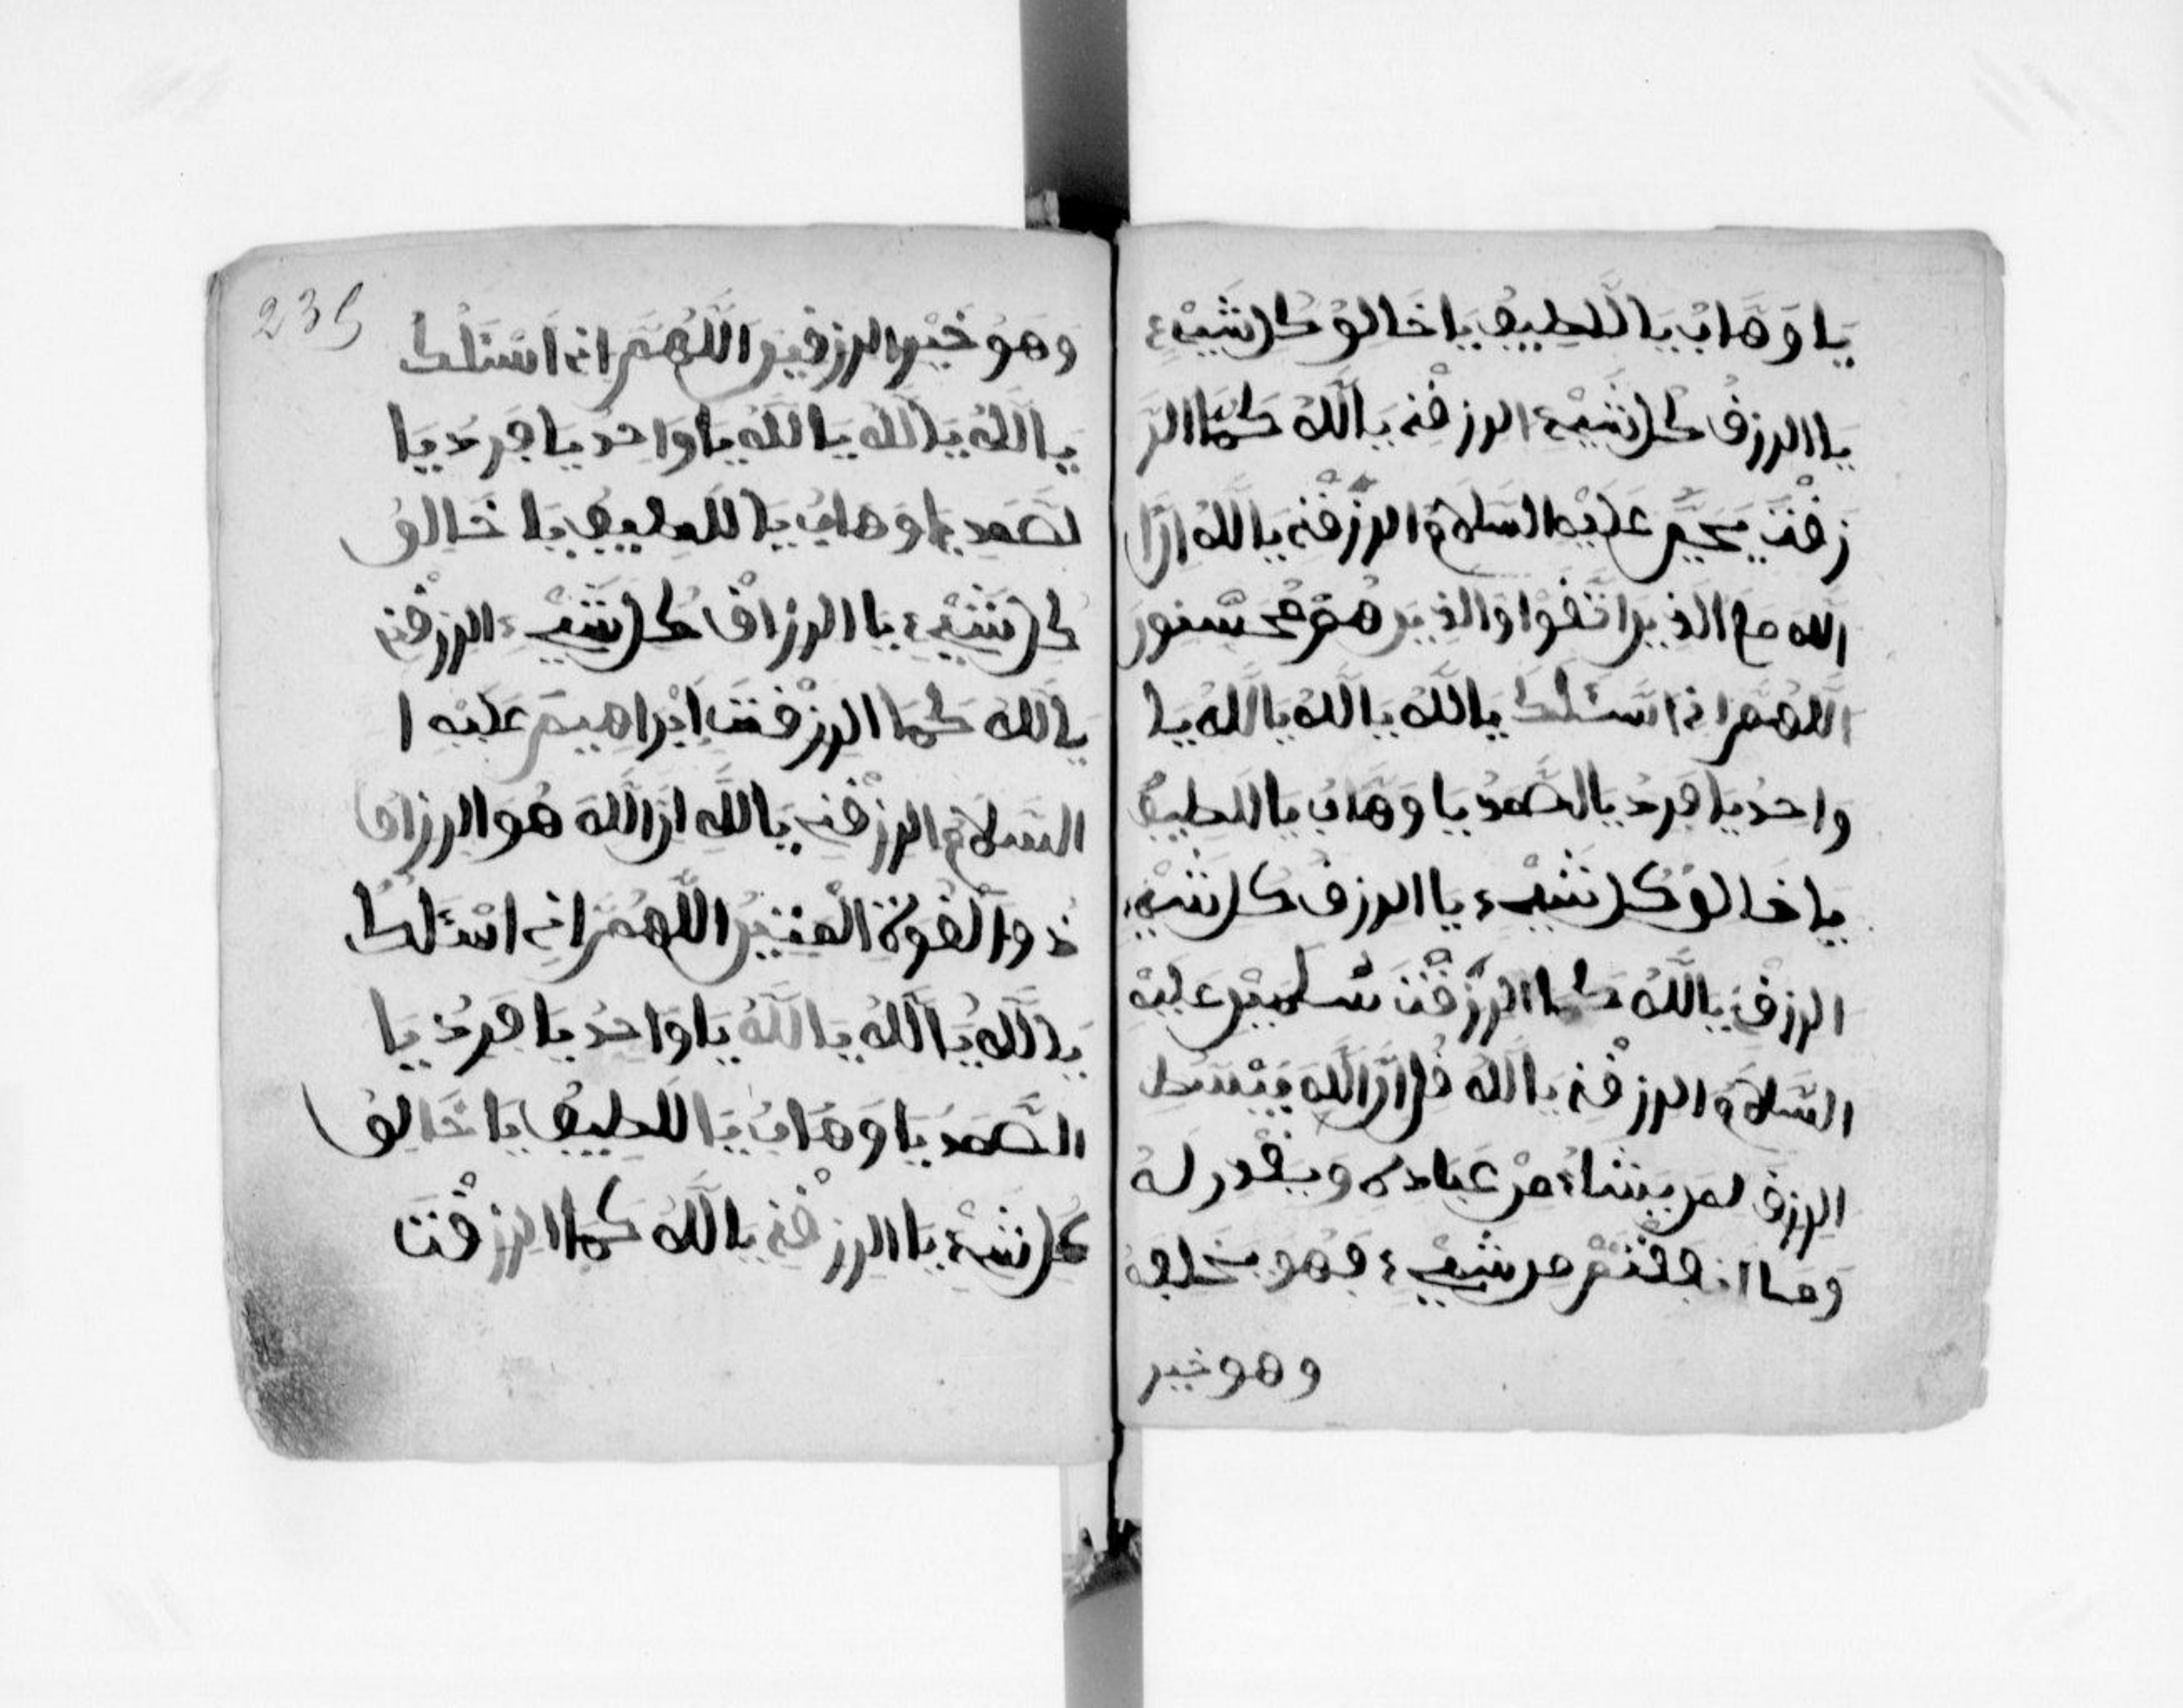 يا وهاب يا اللطيف يا خالق كل شيء
يا الرزق كل شيء الرزقني يا الله كما الر
زقت يحيى عليه السلام الرزقني يا الله ان
الله مع الذين اتقوا والذين هم محسنون
اللهم اني اسئلك يا الله يا الله يا الله يا
واحد يا فرد يا الصمد يا وهاب يا اللطيف
يا خالق كل شيء يا الرزق كل شيء
الرزقني يا الله كما الرزقت سليمن عليه
السلام الرزقني يا الله قل ان الله يبسط
الرزق لمن يشاء من عباده ويقدر له
وما انفقتم من شيء فهو يخلفه
وهو خير
235
وهو خير الرزقين اللهم اني اسئلك
يا الله يا الله يا الله يا واحد يا فرد يا
لصمد يا وهاب يا اللطيف يا خالق
كل شيء يا الرزاق كل شيء الرزقني
يا الله كما الرزقت ابراهيم عليه ا
السلام الرزقني يا الله ان الله هو الرزاق
ذوا القوة المتين اللهم اني اسئلك
يا الله يا الله يا الله يا واحد يا فرد يا
الصمد يا وهاب يا اللطيف يا خالق
كل شيء يا الرزقني يا الله كما الرزقت